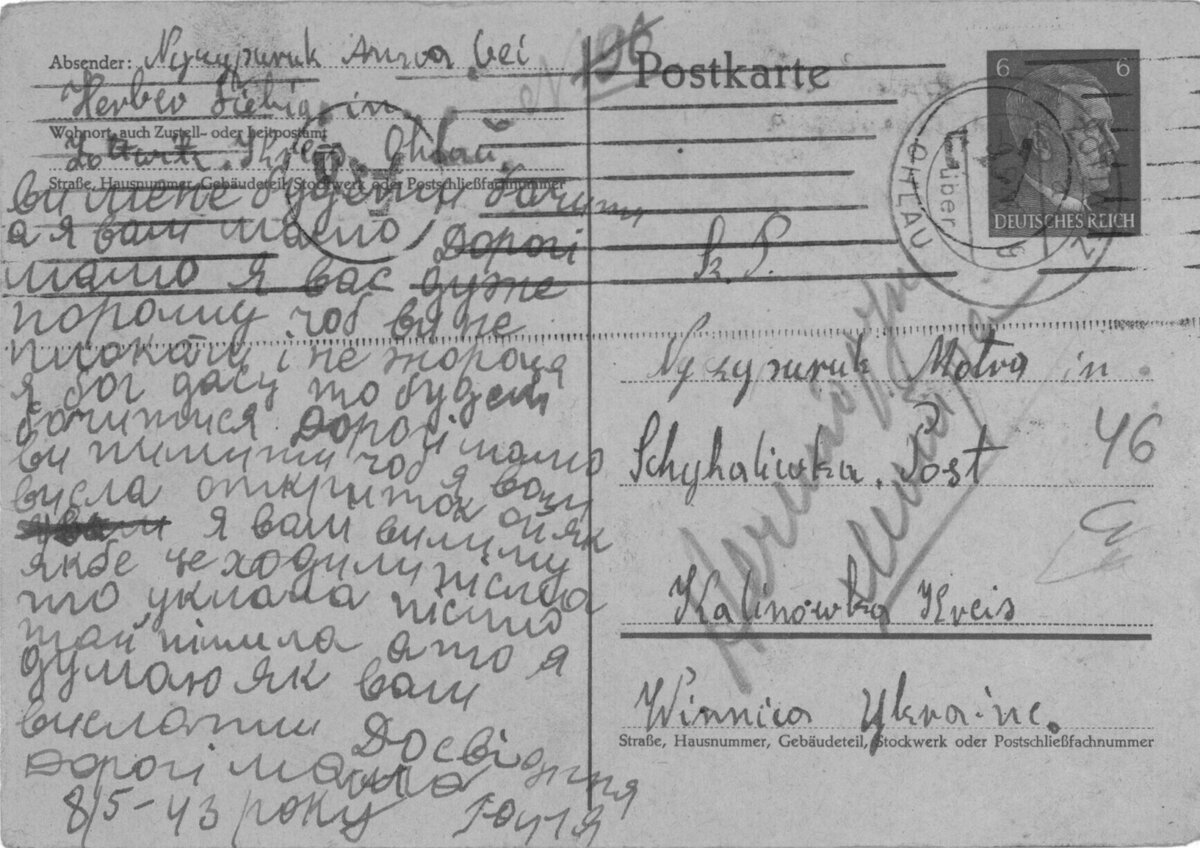 Absender: Nyczyparuk Anna bei
Herbert Liebig in
Wohnort, auch Zustell- oder Leitpostamt
Kreis Ohlau
Straße, Hausnummer, Gebäudeteil, Stockwerk oder Postschließfachnummer
ви мене будети бачити
а я вам мамо Дорогі
мамо я вас дуже
порошу чоб ви не
плокали і не
я бог дасц то будем
бочитися Дорогі мамо
ви пишити чоб я вам
висла открыток ой як
я вам вишлиму
якбе це ходили пісма
то уклала пісмо
тай пішила а то я
думаю як вам
вислати Досвіданя
Дорогі мама
8/5-43 року Гонтя
Postkarte
6 6
DEUTSCHES REICH
OHLAU
über
Nyczyparuk Motra in
Schyhaliwka. Post
46
Kalinowka Kreis
Winnica Ukraine.
Straße, Hausnummer, Gebäudeteil, Stockwerk oder Postschließfachnummer